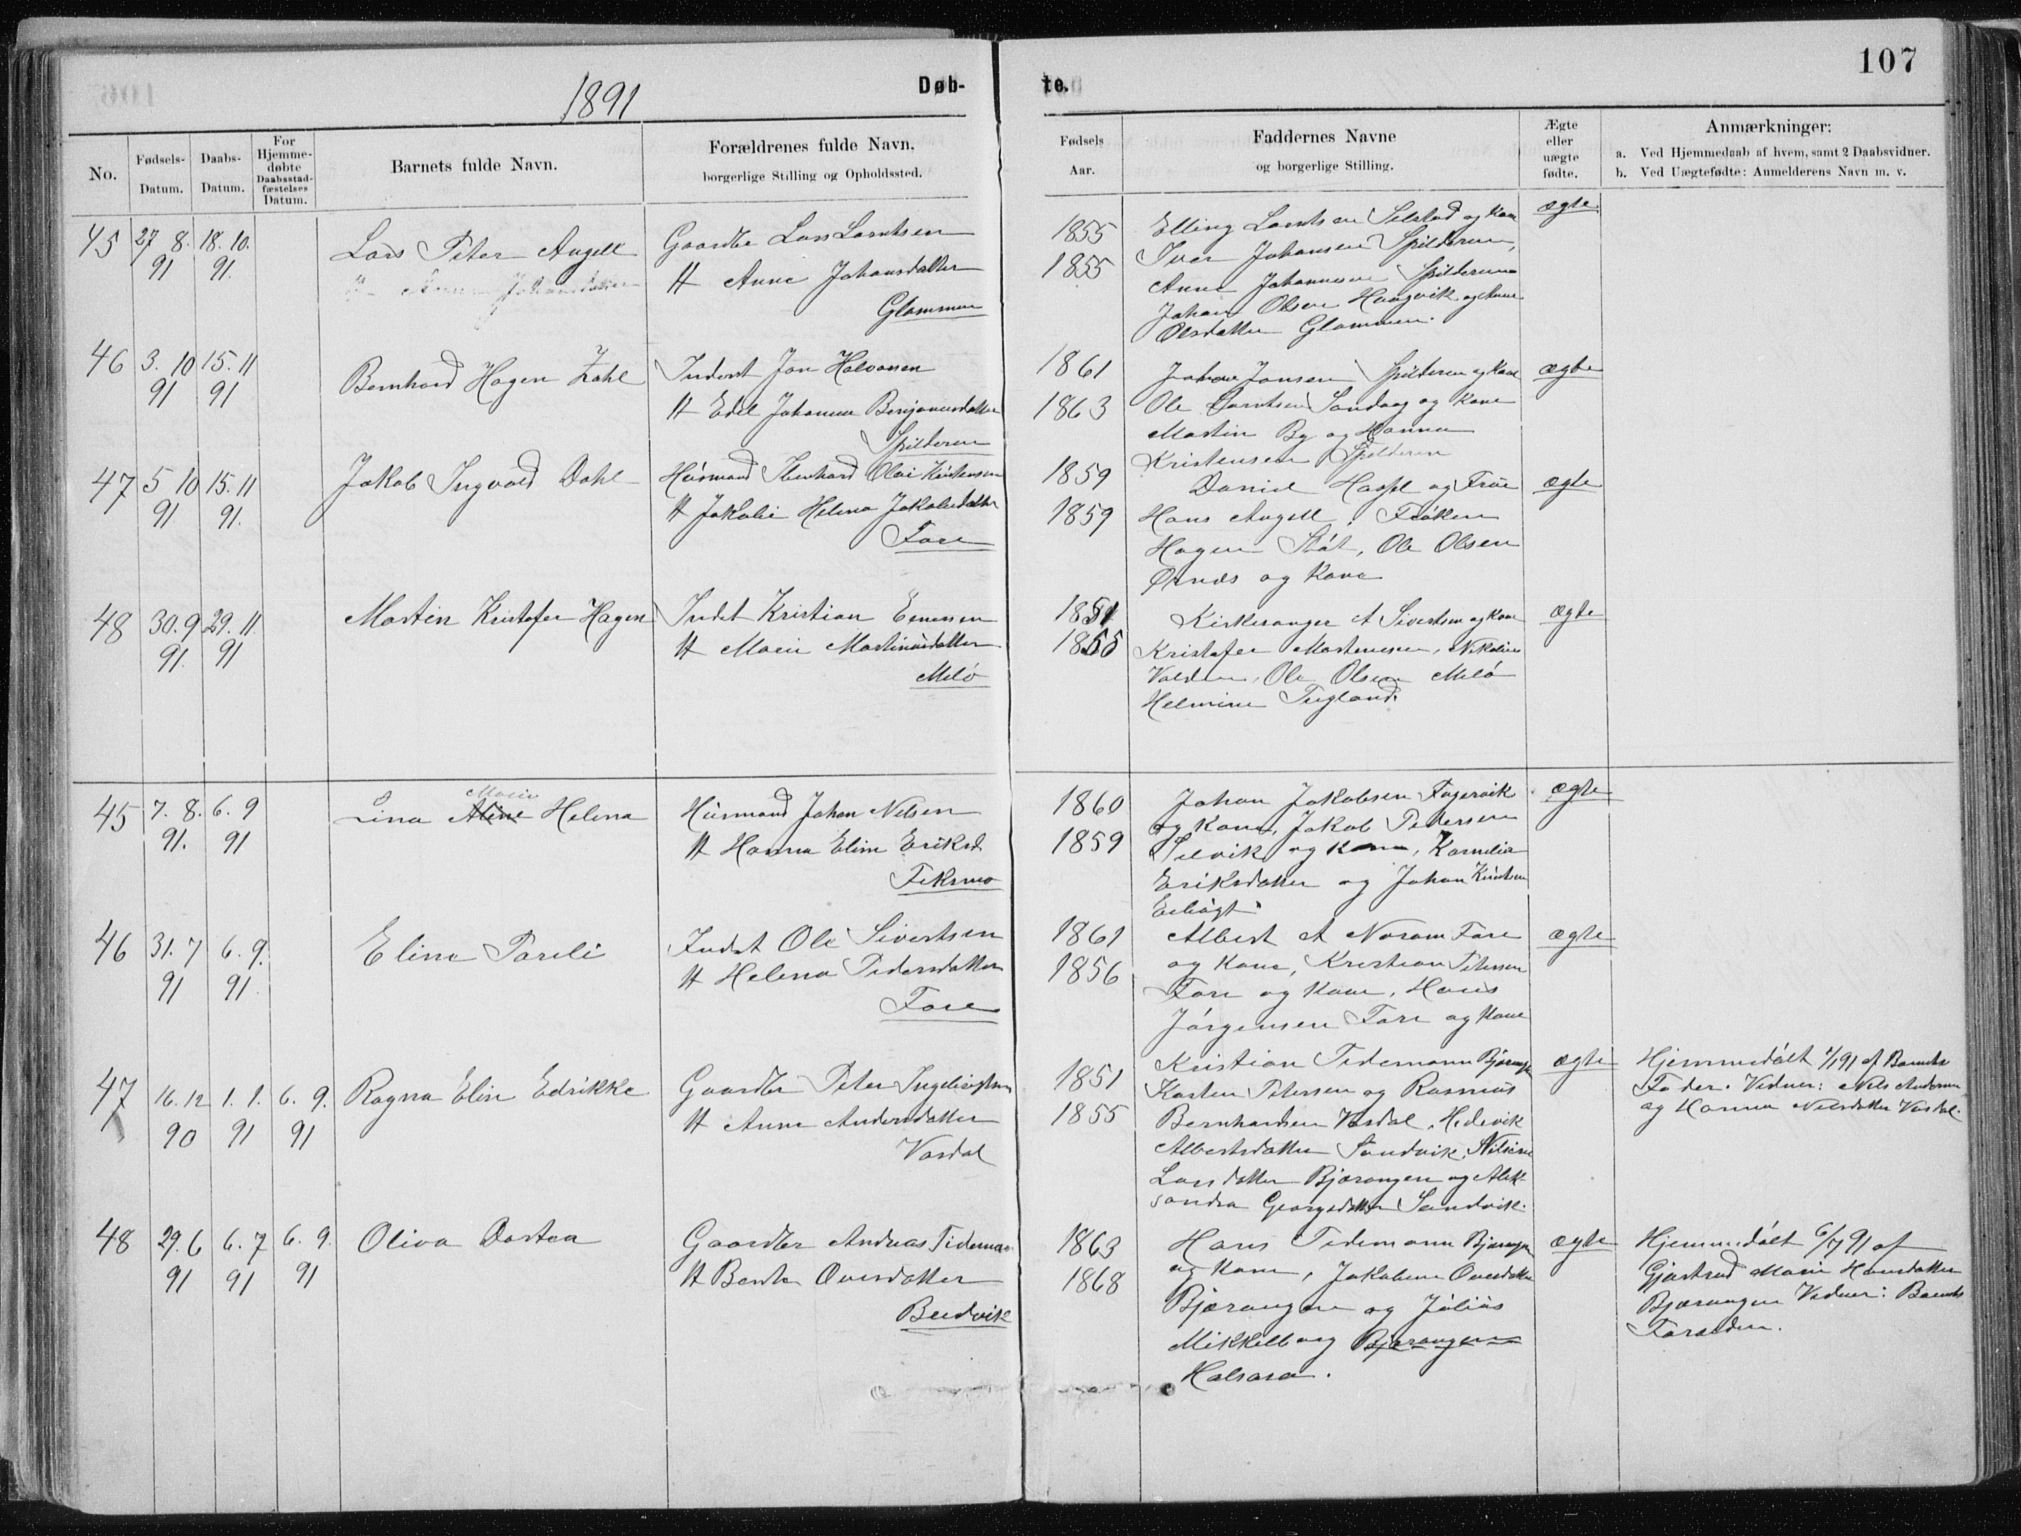 107
1891
Døb-
te.
No.
Fødsels-
Datum.
Daabs-
Datum.
For
Hjemme-
døbte
Daabsstad-
fæstelses
Datum.
Barnets fulde Navn.
Forældrenes fulde Navn,
borgerlige Stilling og Opholdssted.
Fødsels
Aar.
Faddernes Navne
og borgerlige Stilling.
Ægte
eller
uægte
fødte.
Anmærkninger:
a. Ved Hjemmedaab af hvem, samt 2 Daabsvidner.
b. Ved Uægtefødte: Anmelderens Navn m. v.
45 27 8. 18. 10.
91 91.
Lars Peter Angell
Gaardbr Lars Larntsen
H Anne Johansdatter
Glommen
1855
1855
Elling Larntsen Selstad og Kone
Iver Johansen Spilderen,
Anne Johannesen Spilderen
Johan Olsen Haugvik og Anne
Olsdatter Glommen.
ægte
46 3. 10 15. 11
91 91
Bernhard Hagen Zahl
Inderst Jon Halvorsen
H Edel Johanna Benjaminsdatter
Spilderen
1861
1863
Johan Jonsen Spilderen og Kone
Ole Larntsen Sandaag og Kone
Martin By og Hanna
Kristensen Spilderen
ægte
47 5 10 15. 11
91 91.
Jakob Ingvald Dahl
Húsmand Ibenhard Olai Kristensen
H Jakobie Helena Jakobsdatter
Fore
1859
1859
Daniel Hassel og Frúe
Hans Angell, Frøken
Hagen Støt, Ole Olsen
Ørnes og Kone
ægte
48 30. 9 29. 11.
91. 91
Martin Kristofer Hagen
Indst Kristian Enersen
H Marie Martinúsdatter
Meló
1851
1855
Kirkesanger A Sivertsen og Kone
Kristofer Martinesen, Nikoline
Valden, Ole Olsen Meló
Helmine Teglund
ægte
45 7. 8. 6. 9
91. 91
Marie
Lina Aline Helena
Húsmand Johan Nilsen
H Hanna Elina Eriksd.
Teksmo
1860
1859
Johan Jakobsen Fagervik
og Kone, Jakob Pedersen
Selvik og Kone, Kornelia
Eriksdatter og Johan Knútsen
Esbógt
ægte
46 31. 7 6. 9.
91 91.
Elina Pareli
Indst Ole Sivertsen
H Helena Pedersdatter
Fore
1861
1856
Albert A Norum Fore
og Kone, Kristian Petersen
Fore og Kone, Hans
Jórgensen Fore og Kone
ægte
47 16. 12 1. 1. 6. 9.
90 91 91
Ragna Elin Edrikke
Gaardbr Peter Ingebrigtsen
H Anne Andersdatter
Vasdal
1851
1855
Kristian Tidemann Bjærangen
Karsten Petersen og Rasmús
Bernhardsen Vasdal, Hedevik
Albertsdatter Sandvik, Nilsine
Larsdatter Bjærangen og Alek-
sandra Georgsdatter Sandvik.
ægte
Hjemmedóbt 1/1 91 af Barnets
Fader. Vidner: Nils Andersen
og Hanna Nilsdatter Vasdal.
48 29. 6 6. 7 6. 9.
91 91 91
Oliva Dortea
Gaardbr Andreas Tidemann
H Bente Oversdatter
Budvik
1863
1868
Hans Tidemann Bjærangen
og Kone, Jakobine Oversdatter
Bjærangen og Júliús
Mikkelborg Bjærangen
Halsaa.
ægte
Hjemmedóbt 6/7 91 af
Gjertrud Marie Hansdatter
Bjærangen Vidner: Barnets
Forældre.